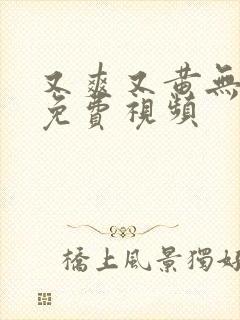 又爽又黄無
免費視頻
橋上風景獨好